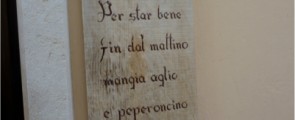 Per star bene
fin dal mattino
mangia aglio
e peperoncino